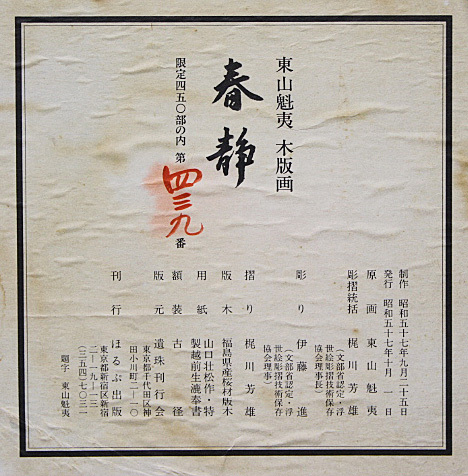 東山魁夷 木版画
春静
限定四五〇部の内 第四三九番
制作 昭和五十七年九月二十五日
発行 昭和五十七年十月一日
原画 東山魁夷
彫摺統括 梶川芳雄
(文部省認定・浮
世絵彫摺技術保存
協会理事長)
彫り 伊藤進
(文部省認定・浮
世絵彫摺技術保存
協会理事)
摺り 梶川芳雄
版木 福島県産桜材版木
用紙 山口壮松作・特
製越前生漉奉書
額装 古径
版元 遺珠刊行会
東京都千代田区神
田小川町二ー一〇
刊行 ほるぷ出版
東京都新宿区新宿
二ー一九ー一三
(三五四)七〇三一
題字 東山魁夷